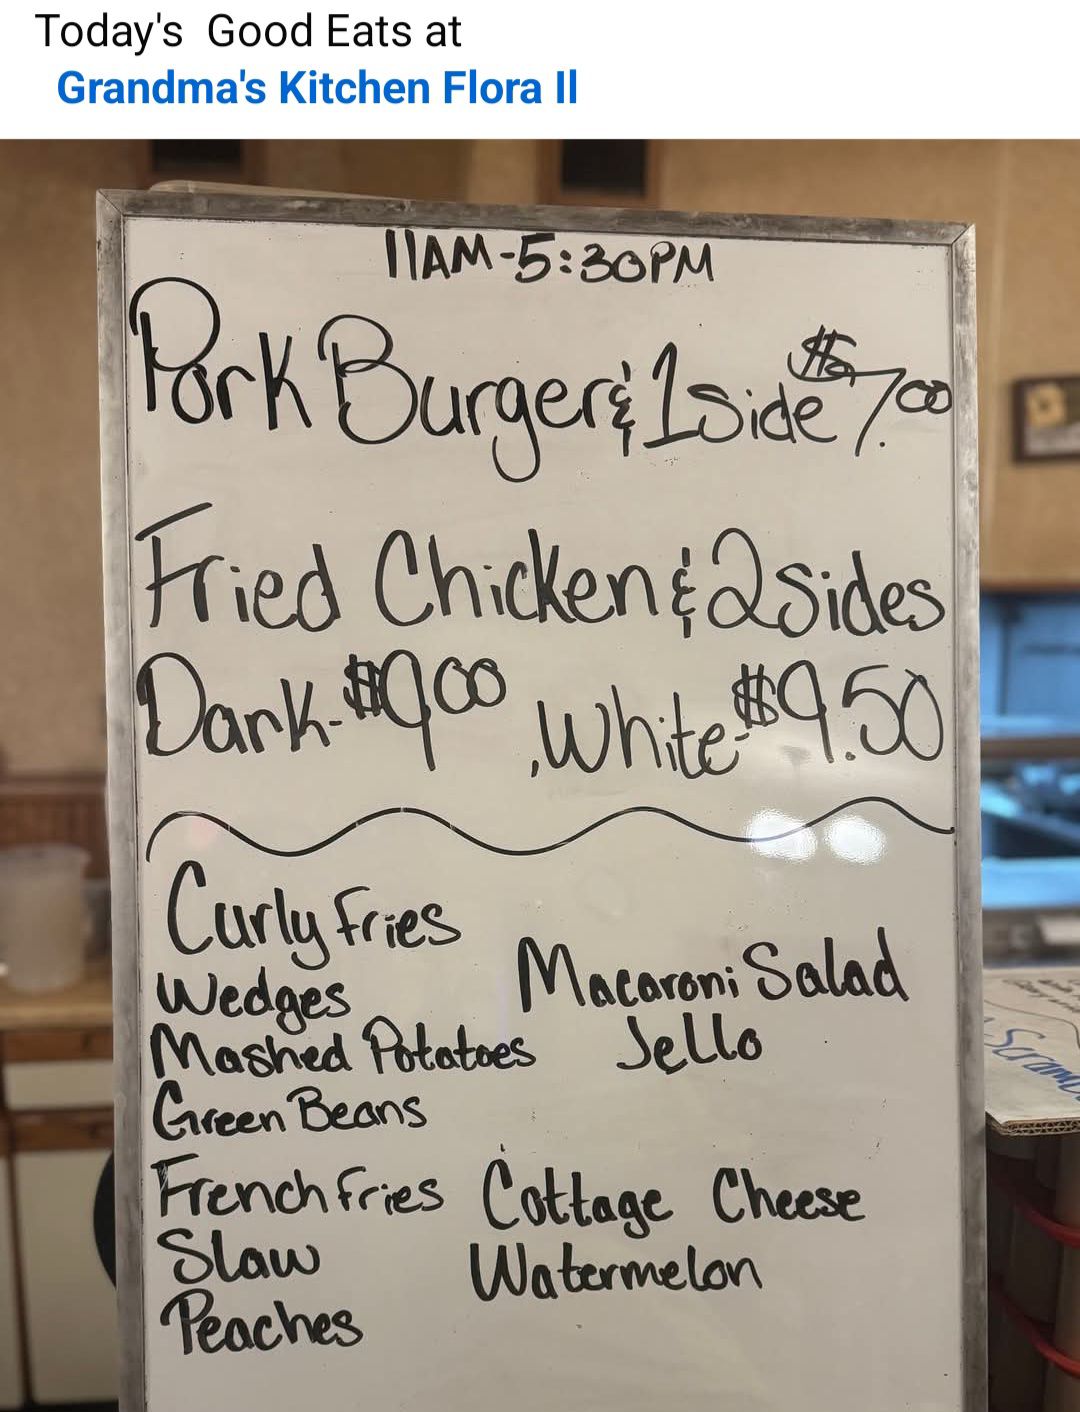 Today's Good Eats at
Grandma's Kitchen Flora Il
11AM-5:30PM
Pork Burger & 1 side $7.00
Fried Chicken & 2 sides
Dark-$9.00, White-$9.50
Curly Fries
Wedges
Mashed Potatoes
Green Beans
French Fries
Slaw
Peaches
Macaroni Salad
Jello
Cottage Cheese
Watermelon